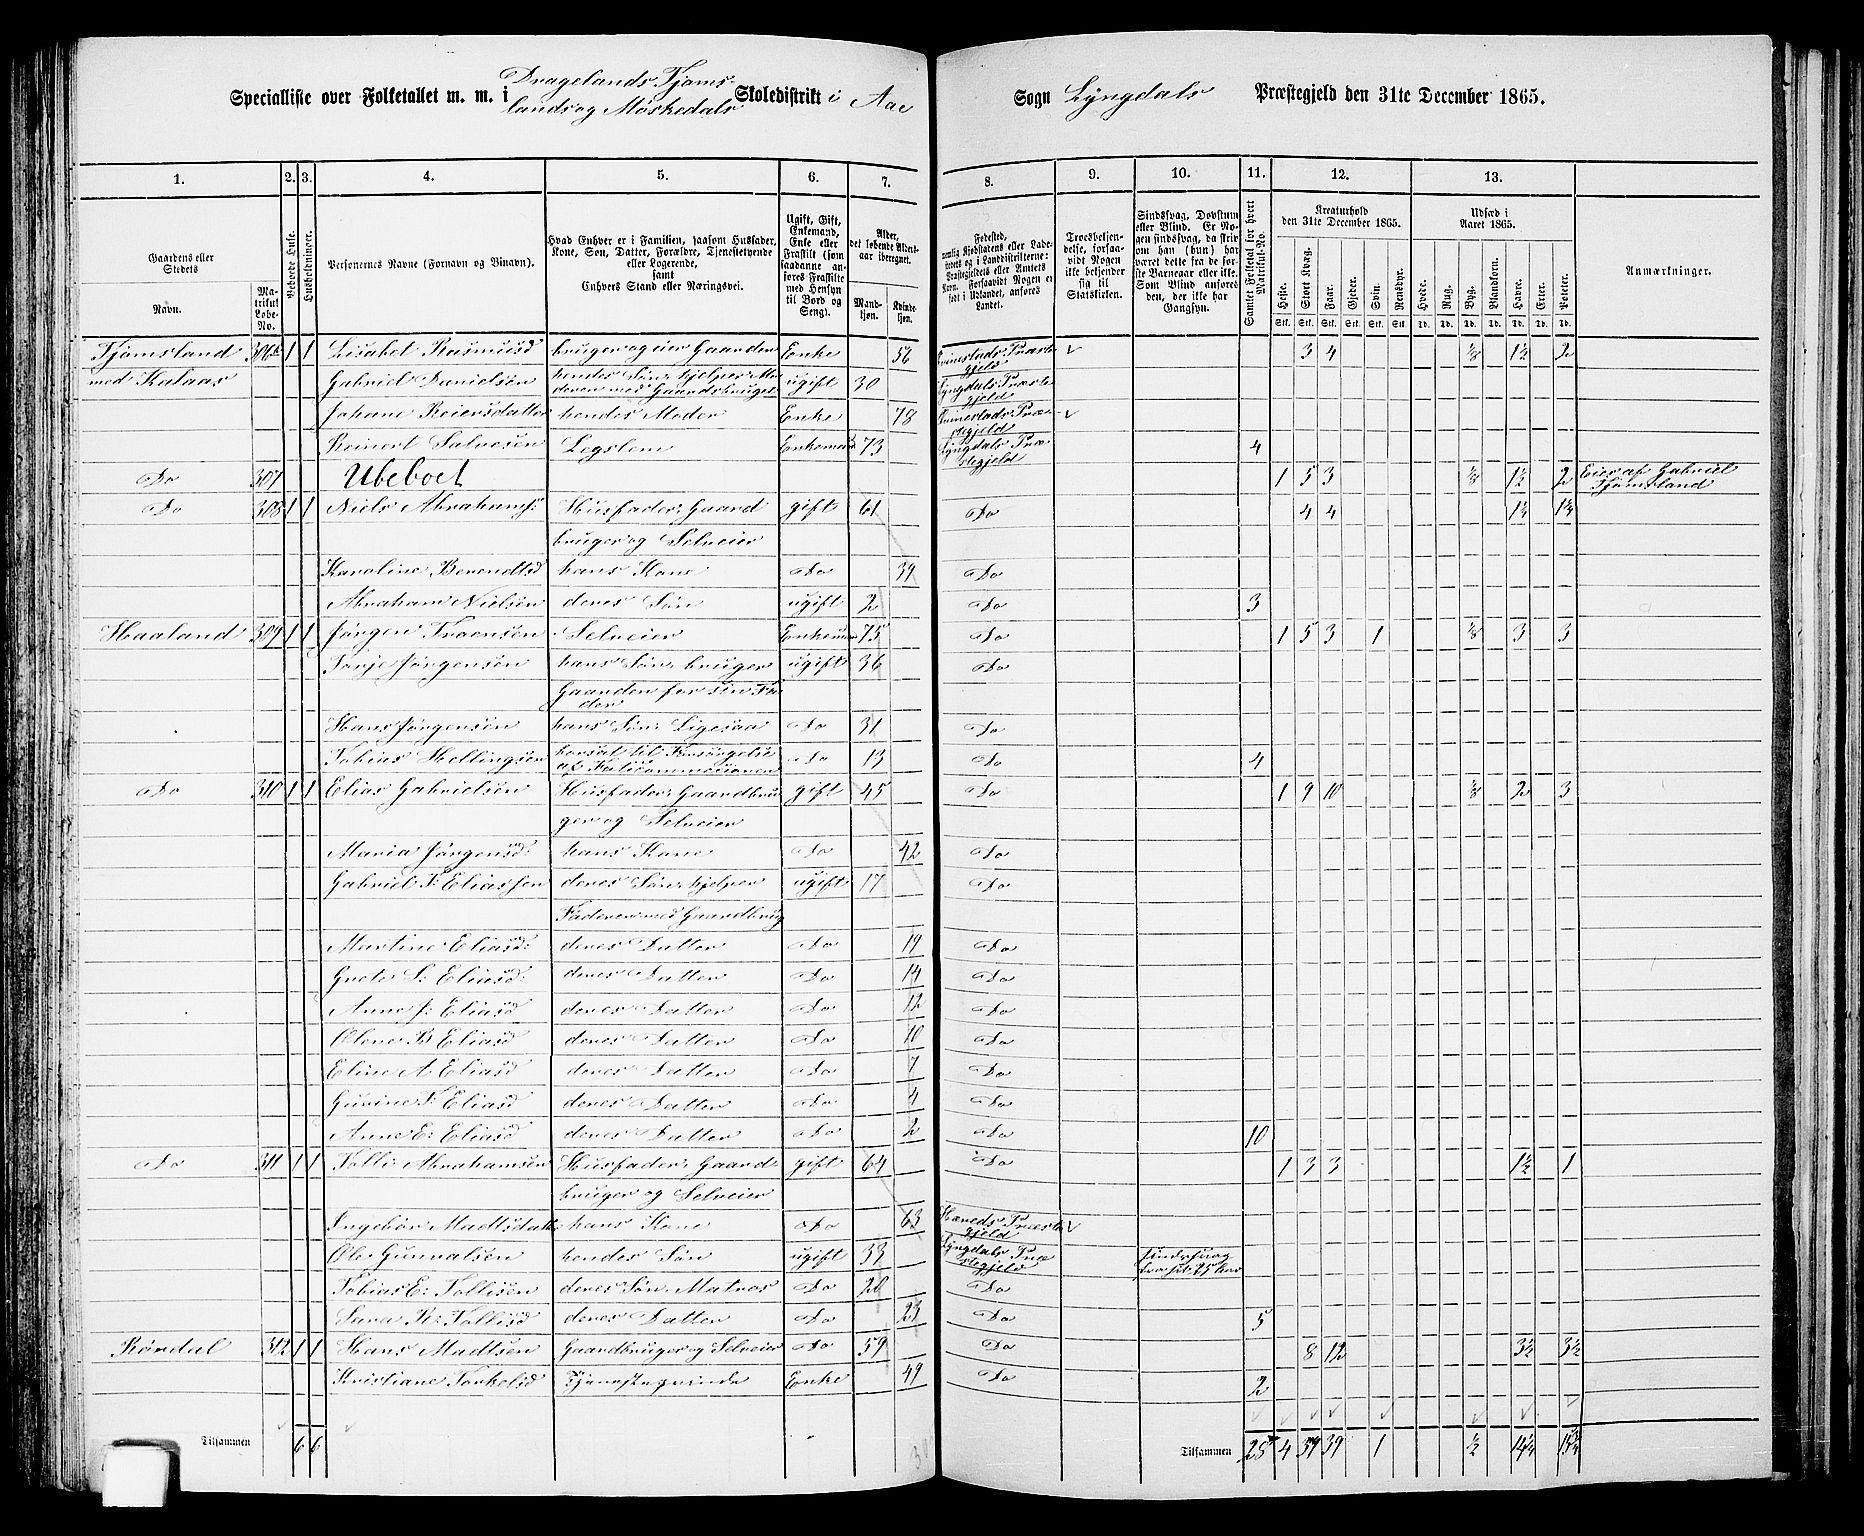 Specialliste over Folketallet m. m. i Dragelands, Tjøms-
lands og Möskedals Skoledistrikt i Aae Sogn Lyngdals Præstegjeld den 31te December 1865.
1. 2. 3. 4. 5. 6. 7. 8. 9. 10. 11. 12. 13.
Gaardens eller Stedets
Navn.
Matrikul Løbe-No.
Beboede Huse.
Husholdninger.
Personernes Navne (Fornavn og Binavn).
Hvad Enhver er i Familien, saasom Husfader,
Kone, Søn, Datter, Forældre, Tjenestetyende
eller Logerende,
samt
Enhvers Stand eller Næringsvei.
Ugift, Gift,
Enkemand,
Enke eller
Fraskilt (som
saadanne anføres
Fraskilte
med Hensyn
til Bord og
Seng).
Alder,
det løbende Aldersaar
iberegnet.
Mandkjøn.
Kvindekjøn.
Fødested,
nemlig Kjøbstadens eller Ladestedets
og i Landdistrikterne:
Præstegjeldets eller Amtets
Navn. Forsaavidt Nogen er
født i Udlandet, anføres
Landet.
Troesbekjendelse,
forsaavidt
Nogen
ikke bekjender
sig til
Statskirken.
Sindssvag, Døvstum
eller Blind. Er Nogen
sindssvag, da skrives
om han (hun) har
været dette fra de første
Barneaar eller ikke.
Som Blind anføres
den, der ikke har
Gangsyn.
Samlet Folketal for hvert Matrikul-No.
Kreaturhold
den 31te December 1865.
Heste. Stort Kvæg. Faar. Gjeder. Svin. Rensdyr.
Stk. Stk. Stk. Stk. Stk. Stk.
Udsæd i
Aaret 1865.
Hvede. Rug. Byg. Blandkorn. Havre. Erter. Poteter.
Td. Td. Td. Td. Td. Td. Td.
Anmærkninger.
Tjømsland 306a 1 1 Lisabet Rasmusd bruger og eier Gaarden Enke 56 Qvinesdals Præstegjeld 3 4 1/8 1½ 2
med Kalaas Gabriel Danielsen hendes Søn, hjelper Moderen med Gaardsbruget ugift 30 Lyngdals Præstegjeld
Johane Reiersdatter hendes Moder Enke 78 Præstegjeld
Reinert Salvesen Legslem Enkemand 73 Lyngdals Præstegjeld 4
Do 307 Ubeboet 1 5 3 1/8 1½ 2 Eies af Gabriel Tjømsland
Do 308 1 1 Niels Abrahams: Husfader, Gaard gift 61 Do 4 4
bruger og Selveier
Karoline Berendtsd hans Kone Do 39 Do
Abraham Nielsen deres Søn ugift 2 Do 3
Haaland 309 1 1 Jørgen Troensen Selveier Enkemand 75 Do 1 5 3 1 1/8 3 3
Tønje Jørgensen hans Søn, bruger ugift 36 Do
Gaarden for sin Fader
Hans Jørgensen hans Søn: Ligesaa Do 31 Do
Tobias Hellingsen borsat til Forsørgelse af Fatticommisionen Do 13 Do 4
Do 310 1 1 Elias Gabrielsen Husfader, Gaardbru gift 45 Do 1 9 10 1/8 2 3
ger og Selveier
Maria Jørgensd: hans Kone Do 42 Do
Gabriel T: Eliassen deres Søn, hjelper ugift 17 Do
Faderen med Gaardbrug
Martine Eliasd: deres Datter Do 19 Do
Grete S: Eliasd: deres Datter Do 14 Do
Anne J: Eliasd deres Datter Do 12 Do
Olene B Eliasd deres Datter Do 10 Do
Eline A Eliasd deres Datter Do 7 Do
Gurine T: Eliasd deres Datter Do 4 Do
Anne E: Eliasd deres Datter Do 2 Do 10
Do 311 1 1 Tolli Abrahamsen Husfader, Gaard gift 64 Do 1 3 3 1½ 1
bruger og Selveier
Ingebor Madtsdatter hans Kone Do 63 Præstegjeld
Ole Gunvalsen hendes Søn ugift 33 Lyngdals Præstegjeld sindssvag
Tobias E: Tollisen deres Søn, Matros Do 26 Do
Sara K: Tollisd deres Datter Do 23 Do 5
Røndal 312 1 1 Hans Madtsen Gaardbruger og Selveier Do 59 Do 8 12 3½ 3½
Kristiane Torkelsd Tjenesteqvinde Enke 49 Do 2
Tilsammen 6 6 Tilsammen 28 4 39 39 1 ½ 14¼